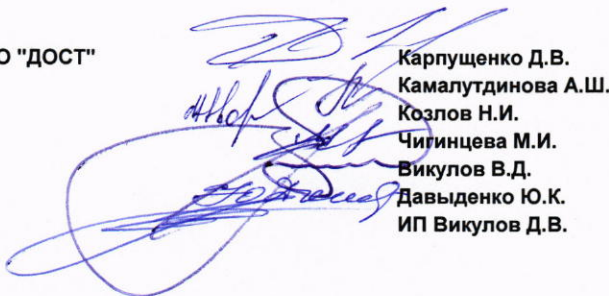 О "ДОСТ"
Карпущенко Д.В.
Камалутдинова А.Ш.
Козлов Н.И.
Чигинцева М.И.
Викулов В.Д.
Давыденко Ю.К.
ИП Викулов Д.В.